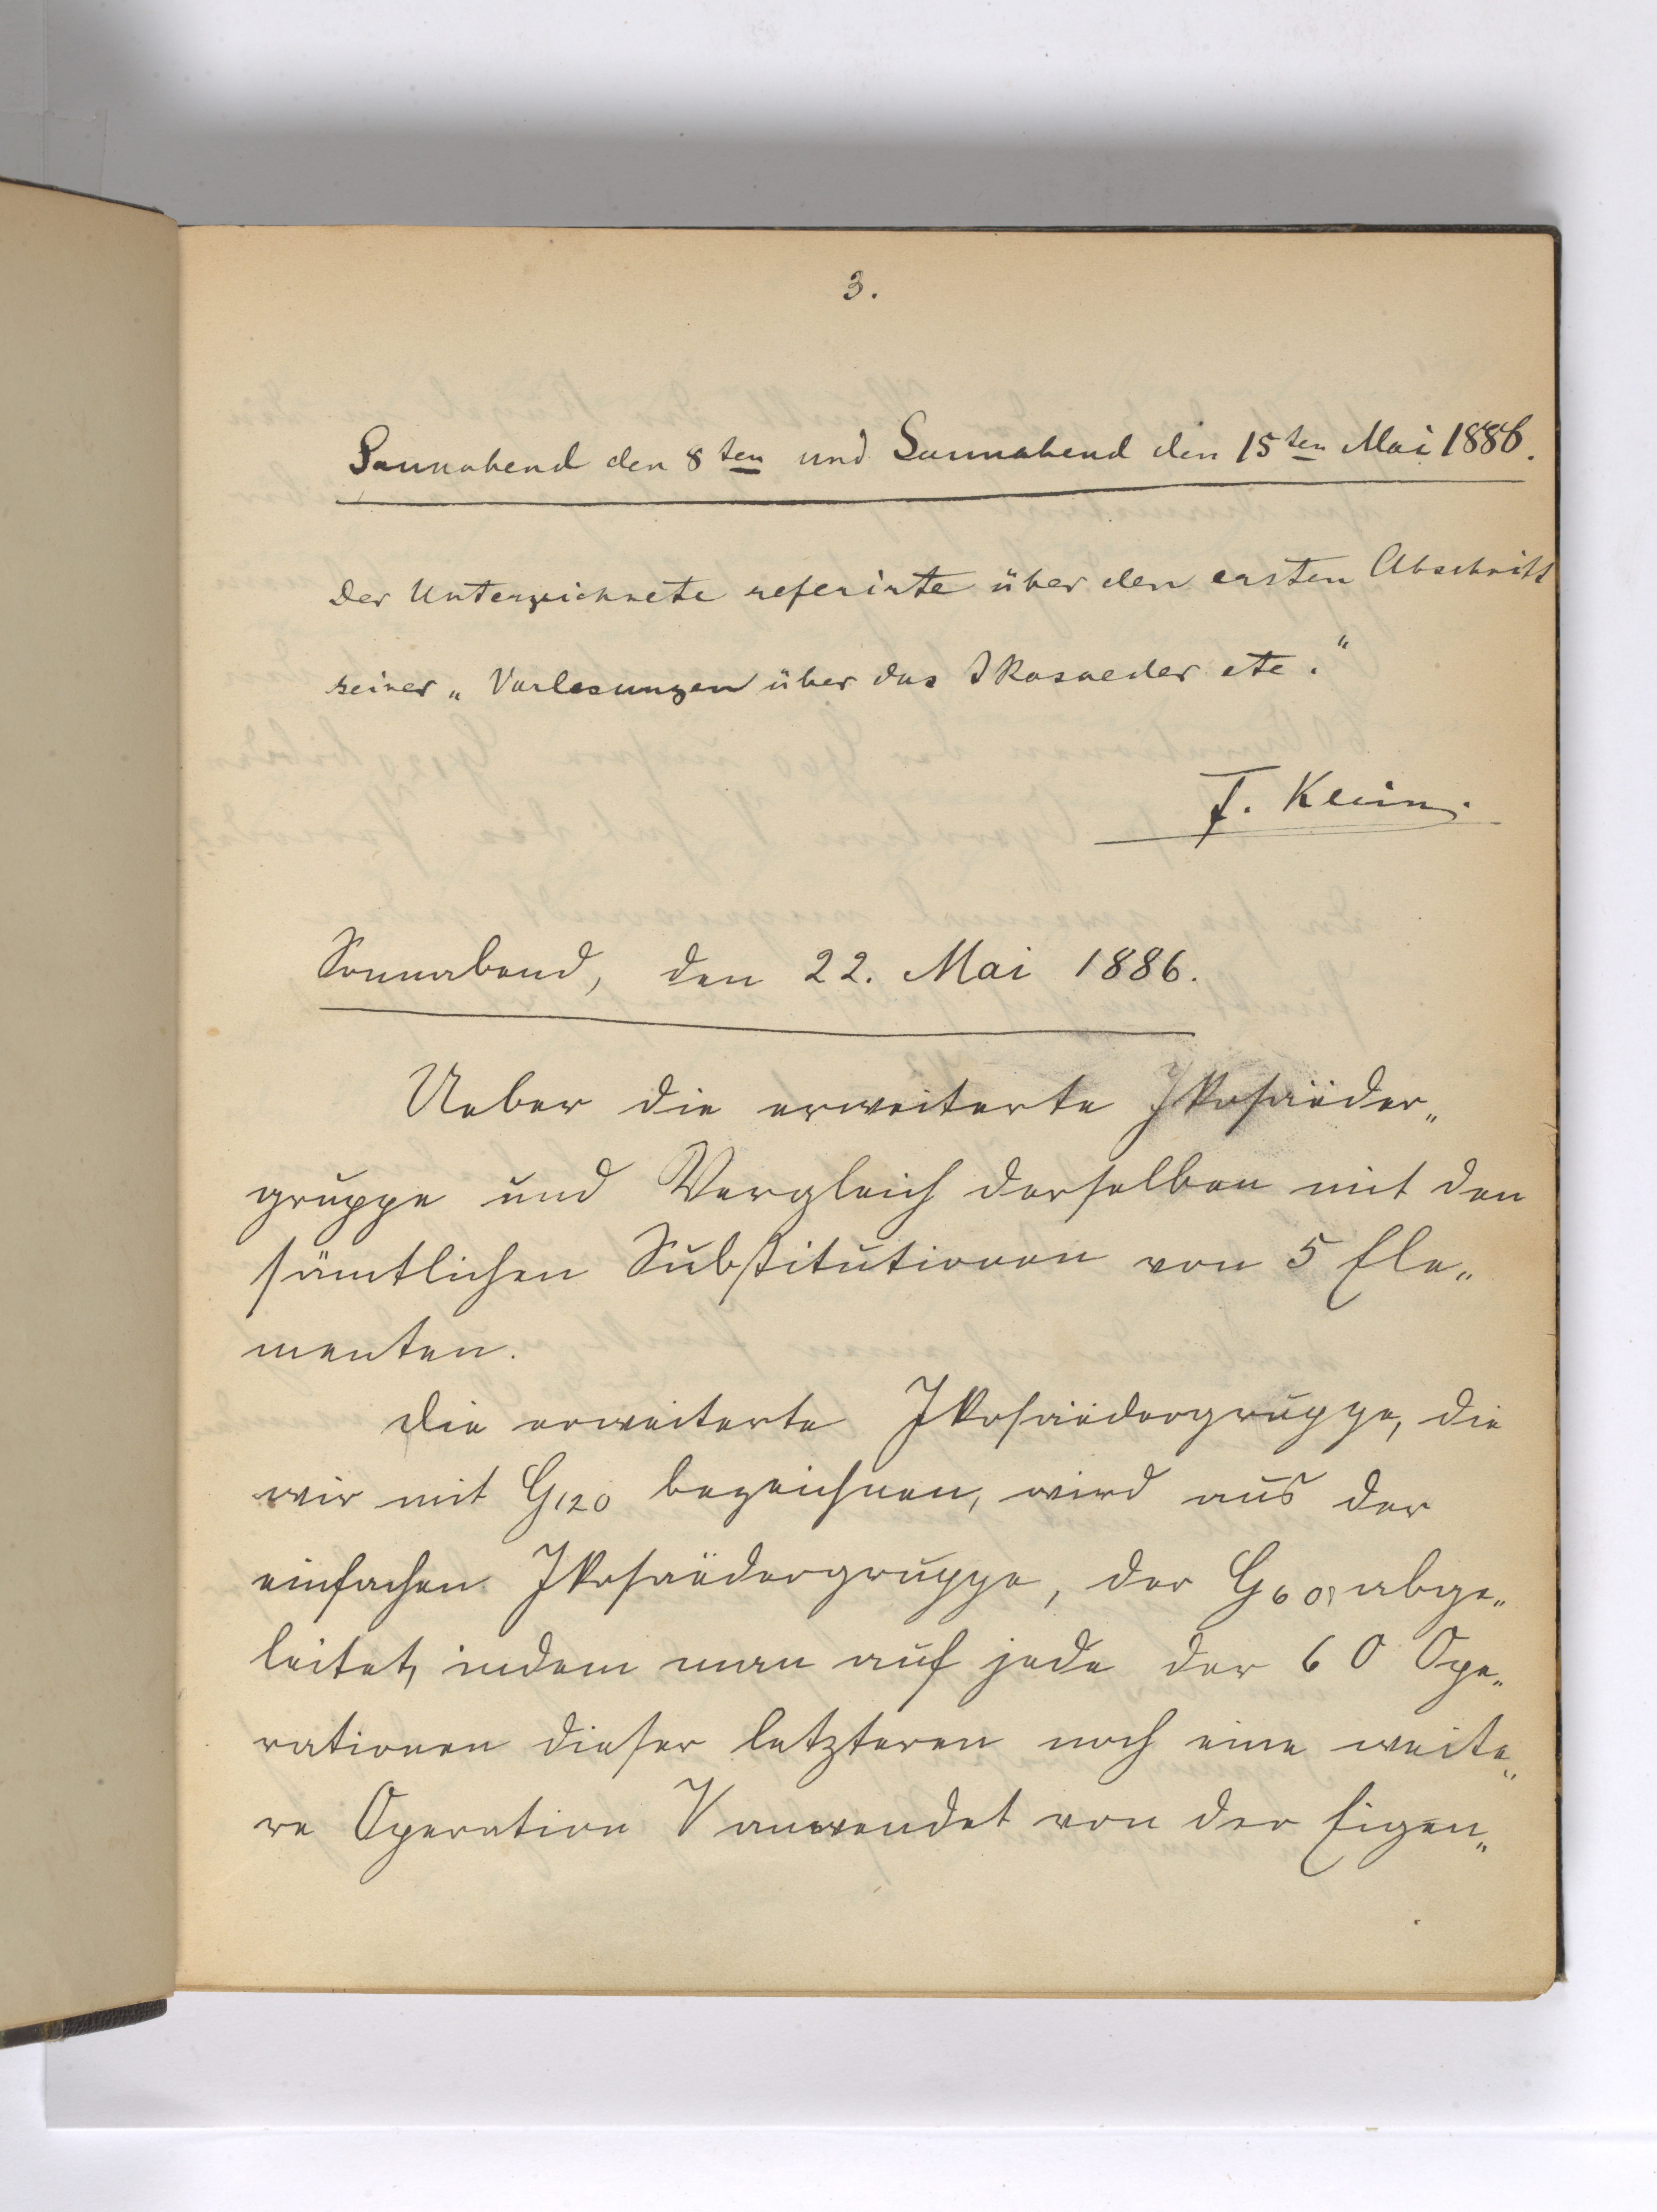 3.
Sonnabend den 8ten und Sonnabend den 15ten Mai 1886.
Der Unterzeichnete referirte über den ersten Abschnitt
seiner „Vorlesungen über das Ikosaeder etc."
F. Klein.
Sonnabend, den 22. Mai 1886.
Ueber die erweiterte Ikosaëder„
gruppe und Vergleich derselben mit den
sämtlichen Substitutionen von 5 Ele„
menten.
Die erweiterte Ikosaëdergruppe, die
wir mit G120 bezeichnen, wird aus der
einfachen Ikosaëdergruppe, der G60, abge„
leitet, indem man auf jede der 60 Ope„
rationen dieser letzteren noch eine weite„
re Operation V anwendet von der Eigen„